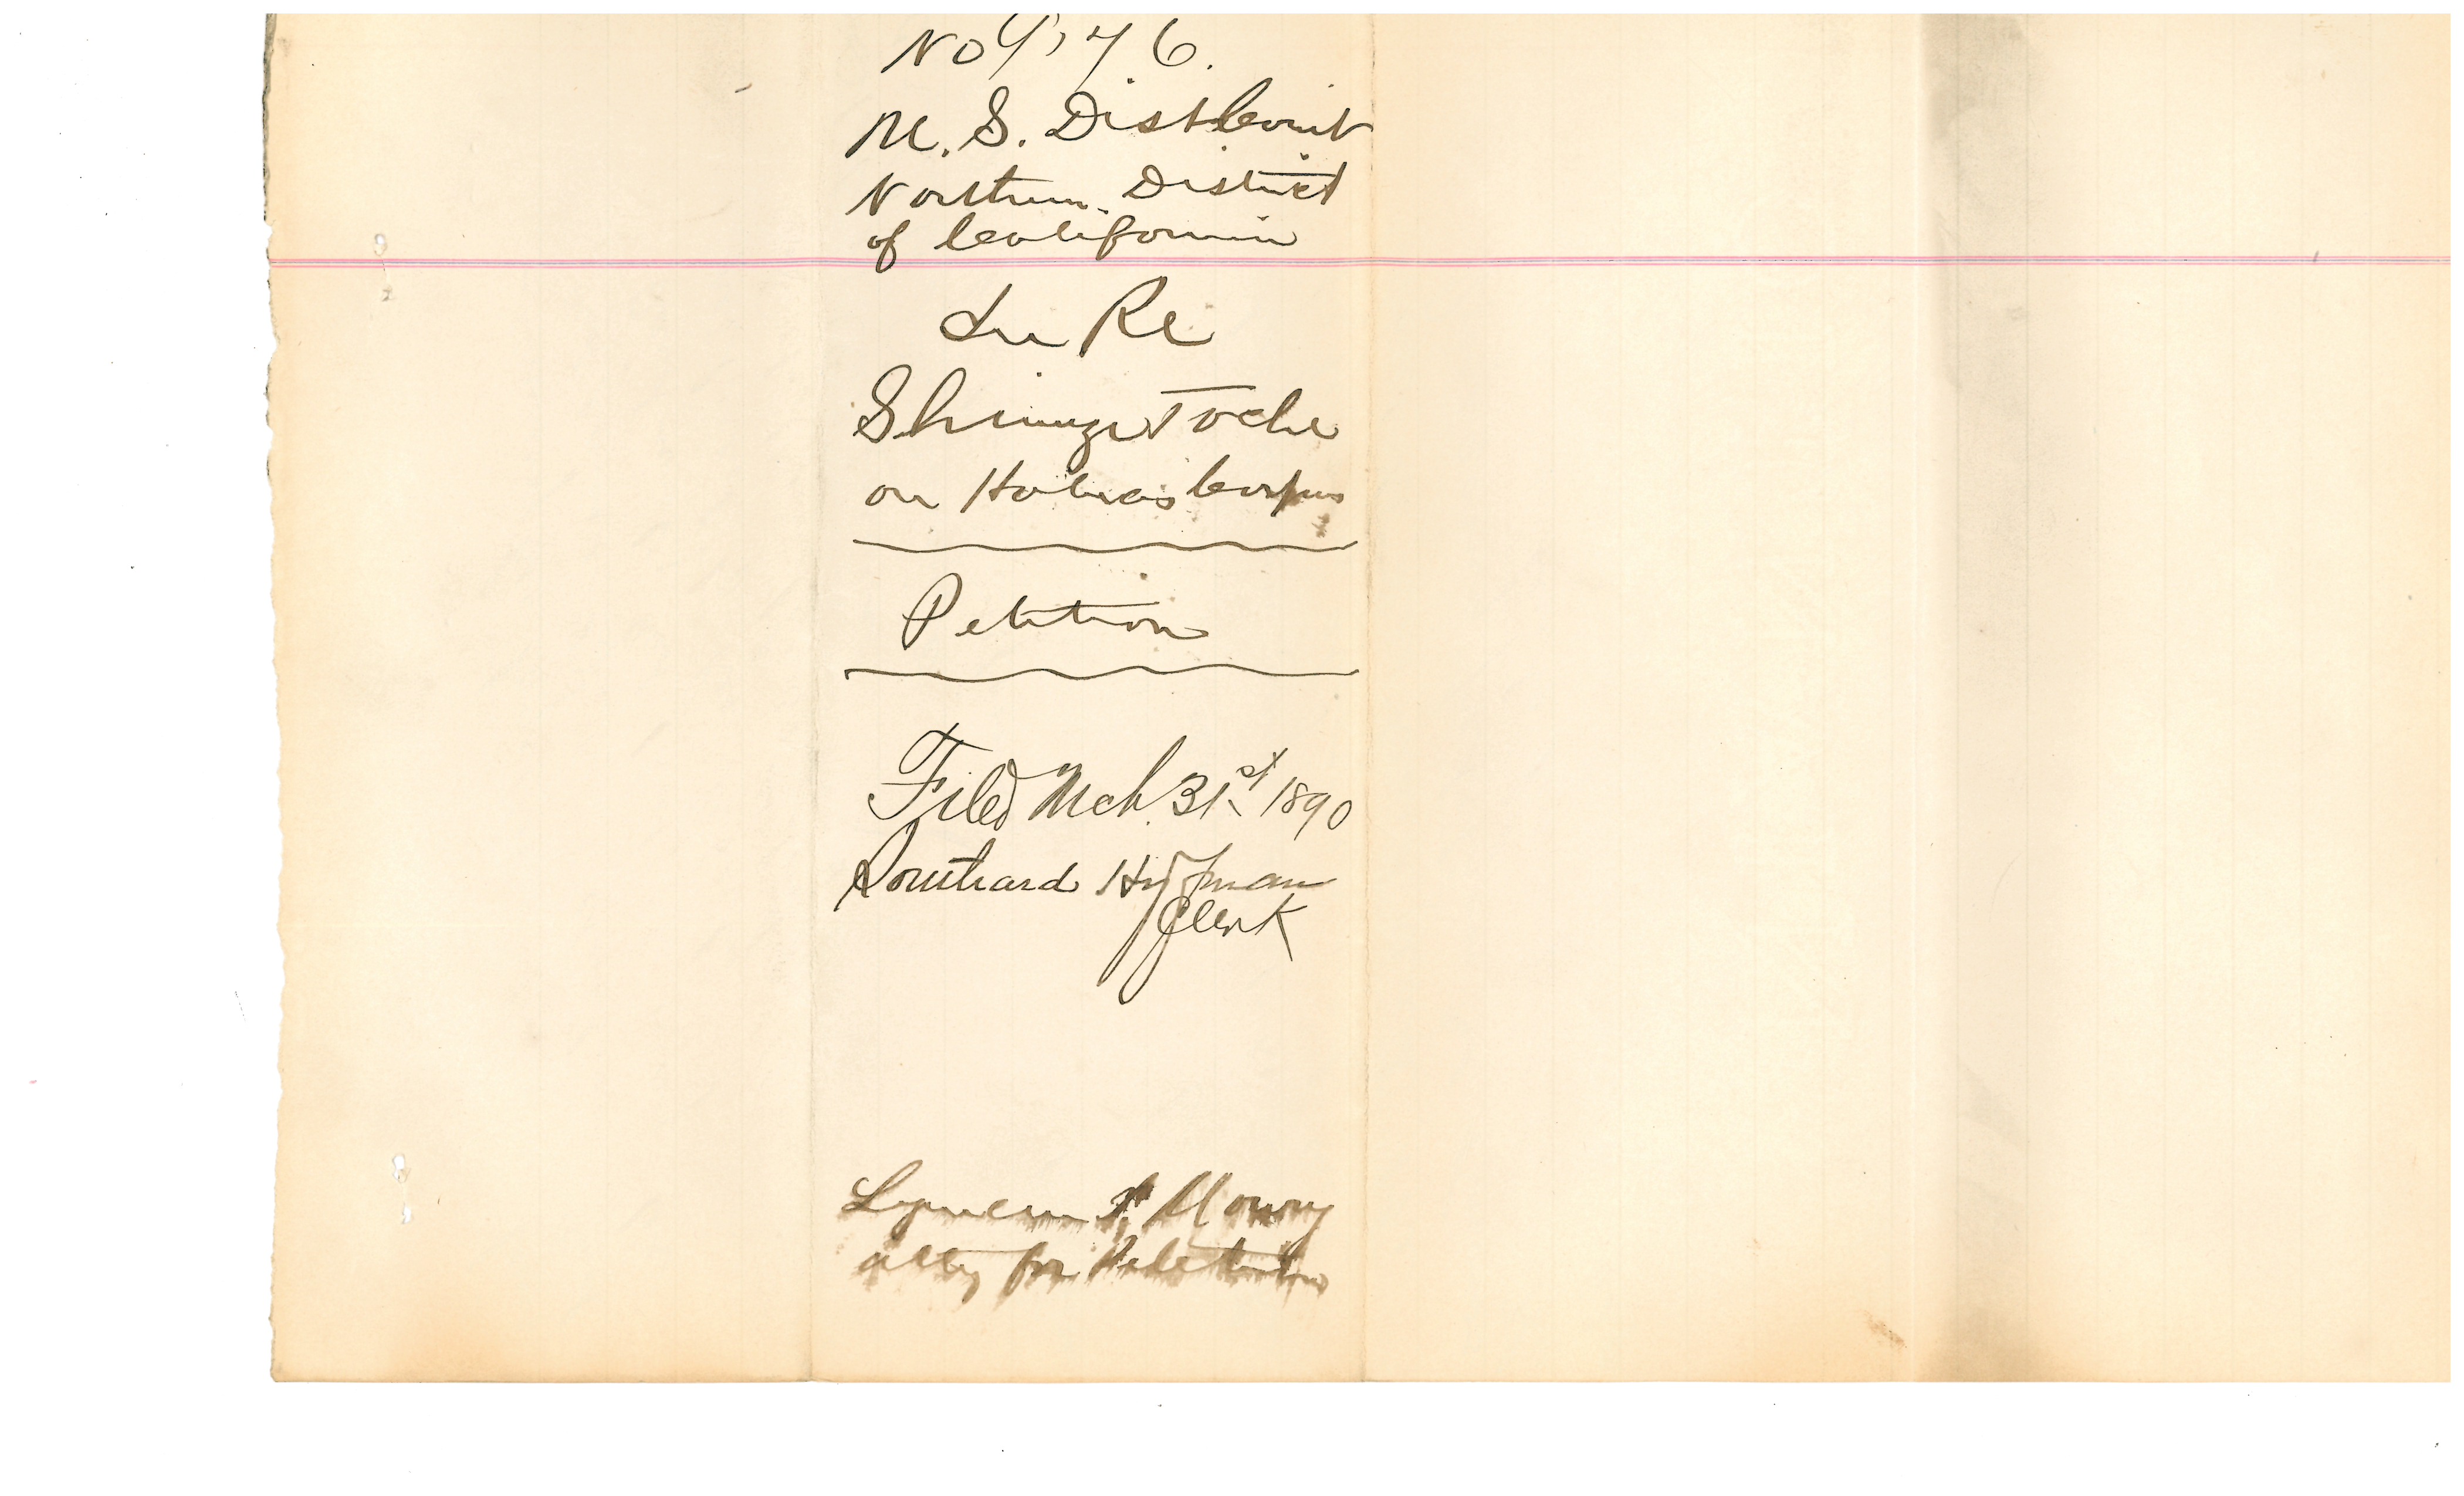 U. S. Dist Court
Northern District
of California
In Re
Shimizu Toche
on Habeas Corpus
Petition
Filed Mch. 31st 1890
Southard Hoffman
Clerk
Lyman I. Mowry
atty for Petitioner